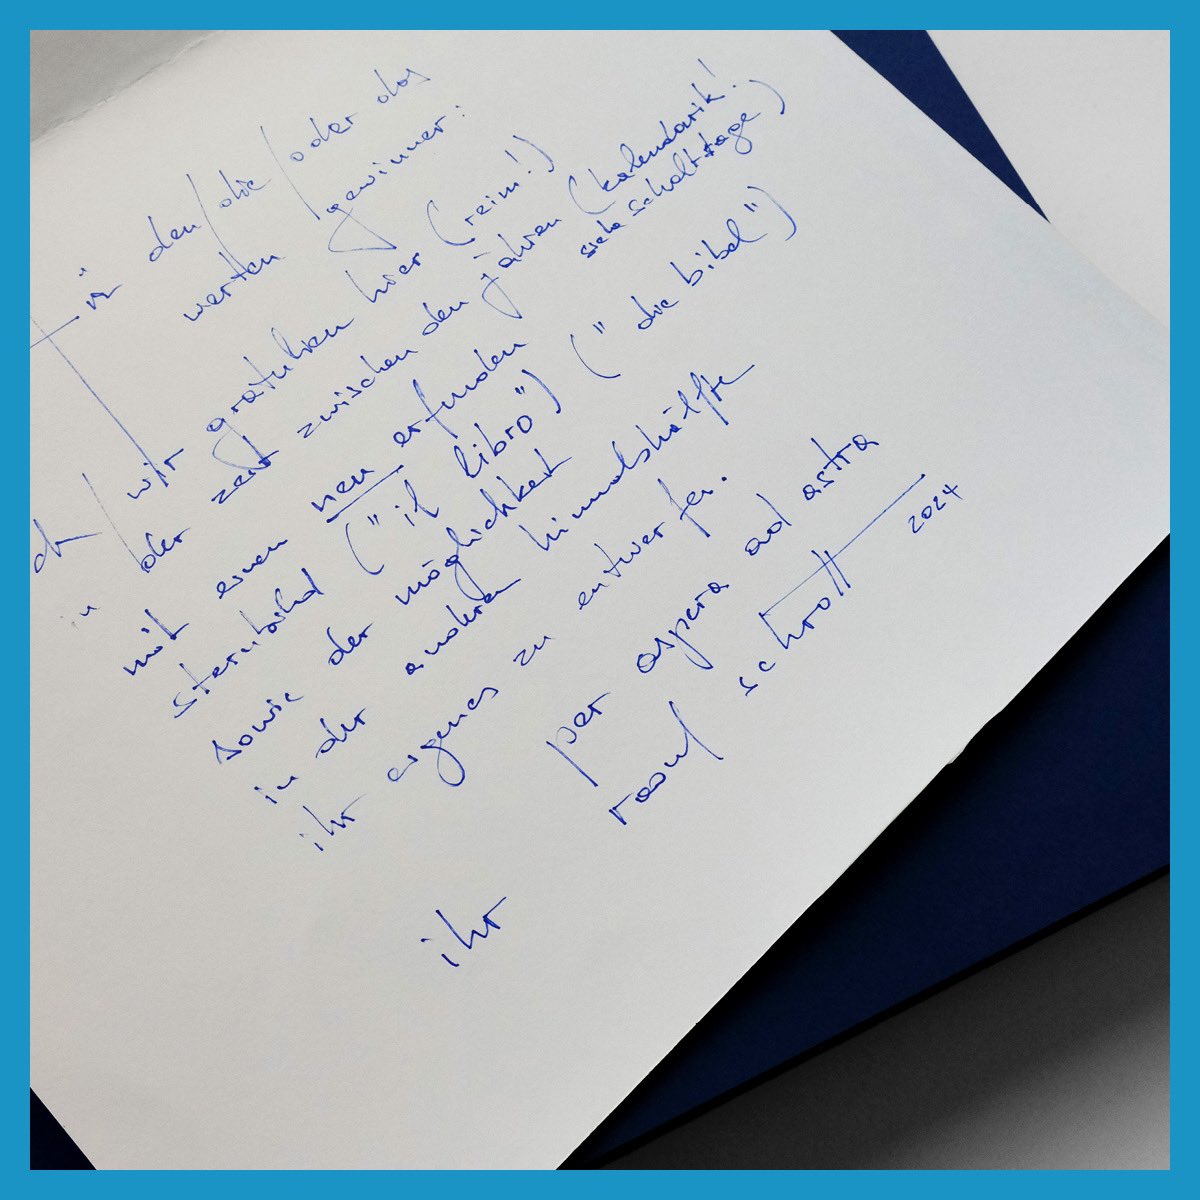 für den/die/oder das
werten gewinner:
wir gratulieren hier (reim!)
in der zeit zwischen den jahren (kalendarik!
siehe schalttage)
mit einem neu erfunden
sternbild ("il libro") ("die bibel")
sowie der möglichkeit
in der andren himmelshälfte
ihr eigenes zu entwerfen.
per aspera ad astra
ihr raoul schrott 2024